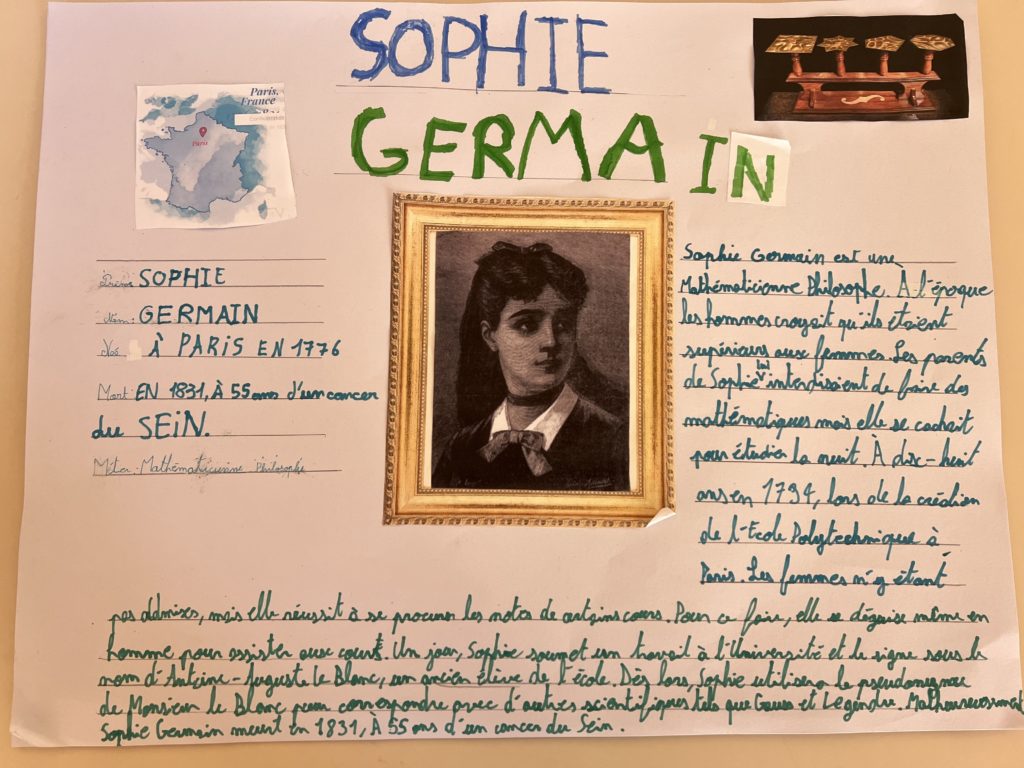 SOPHIE
GERMAIN
Paris,
France
Paris
Prénom SOPHIE
Nom: GERMAIN
Née À PARIS EN 1776
Mort: EN 1831, À 55 ans d'un cancer
du SEIN.
Métier: Mathématicienne Philosophe
Sophie Germain est une
Mathématicienne Philosophe. À l'époque
les hommes croyait qu'ils étaient
supérieurs aux femmes. Les parents
de Sophie lui interdisaient de faire des
mathématiques mais elle se cachait
pour étudier la nuit. À dix-huit
ans en 1794, lors de la création
de l'École Polytechnique à
Paris. Les femmes n'y étant
pas admises, mais elle réussit à se procurer les notes de certains cours. Pour ce faire, elle se déguise même en
homme pour assister aux cours. Un jour, Sophie soumet un travail à l'Université et le signe sous le
nom d'Antoine-Auguste le Blanc, un ancien élève de l'école. Dès lors, Sophie utilisera le pseudonyme
de Monsieur le Blanc pour correspondre avec d'autres scientifiques tels que Gauss et Legendre. Malheureusement
Sophie Germain meurt en 1831, À 55 ans d'un cancer du Sein.